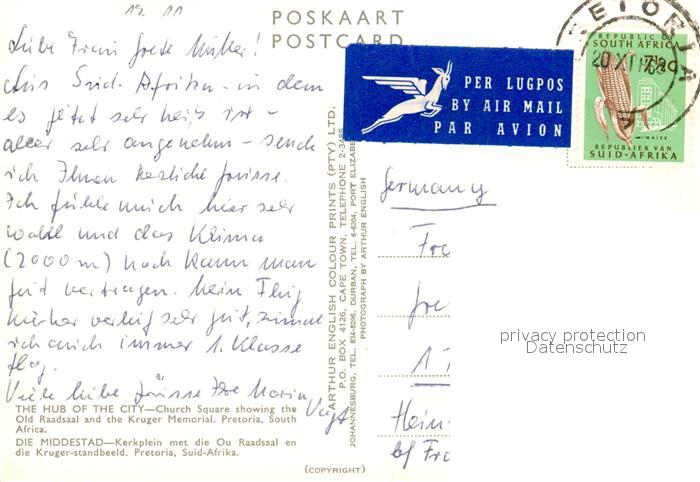 19. 11
POSKAART
POSTCARD
Liebe Frau Grete Müller!
Aus Süd-Afrika - in dem
es jetzt sehr heiß ist -
aber sehr angenehm - sende
ich Ihnen herzliche Grüsse.
Ich fühle mich hier sehr
wohl und das Klima
(2000 m) hoch kann man
gut vertragen. Mein Flug
hierher verlief sehr gut, zumal
ich auch immer 1. Klasse
flog.
Viele liebe Grüsse Ihre Maria
Vogt
THE HUB OF THE CITY—Church Square showing the
Old Raadsaal and the Kruger Memorial. Pretoria, South
Africa.
DIE MIDDESTAD—Kerkplein met die Ou Raadsaal en
die Kruger-standbeeld. Pretoria, Suid-Afrika.
(COPYRIGHT)
ARTHUR ENGLISH COLOUR PRINTS (PTY) LTD.
P.O. BOX 4126, CAPE TOWN, TELEPHONE 2-3485
JOHANNESBURG, TEL. 834-8296, DURBAN, TEL. 6-6204, PORT ELIZABE
PHOTOGRAPH BY ARTHUR ENGLISH
PER LUGPOS
BY AIR MAIL
PAR AVION
PRETORIA
20 XI 1968
REPUBLIC OF
SOUTH AFRICA
MAIZE
REPUBLIEK VAN
SUID-AFRIKA
Germany
Fra
Gre
17
Hein-
bf Fra
privacy protection
Datenschutz